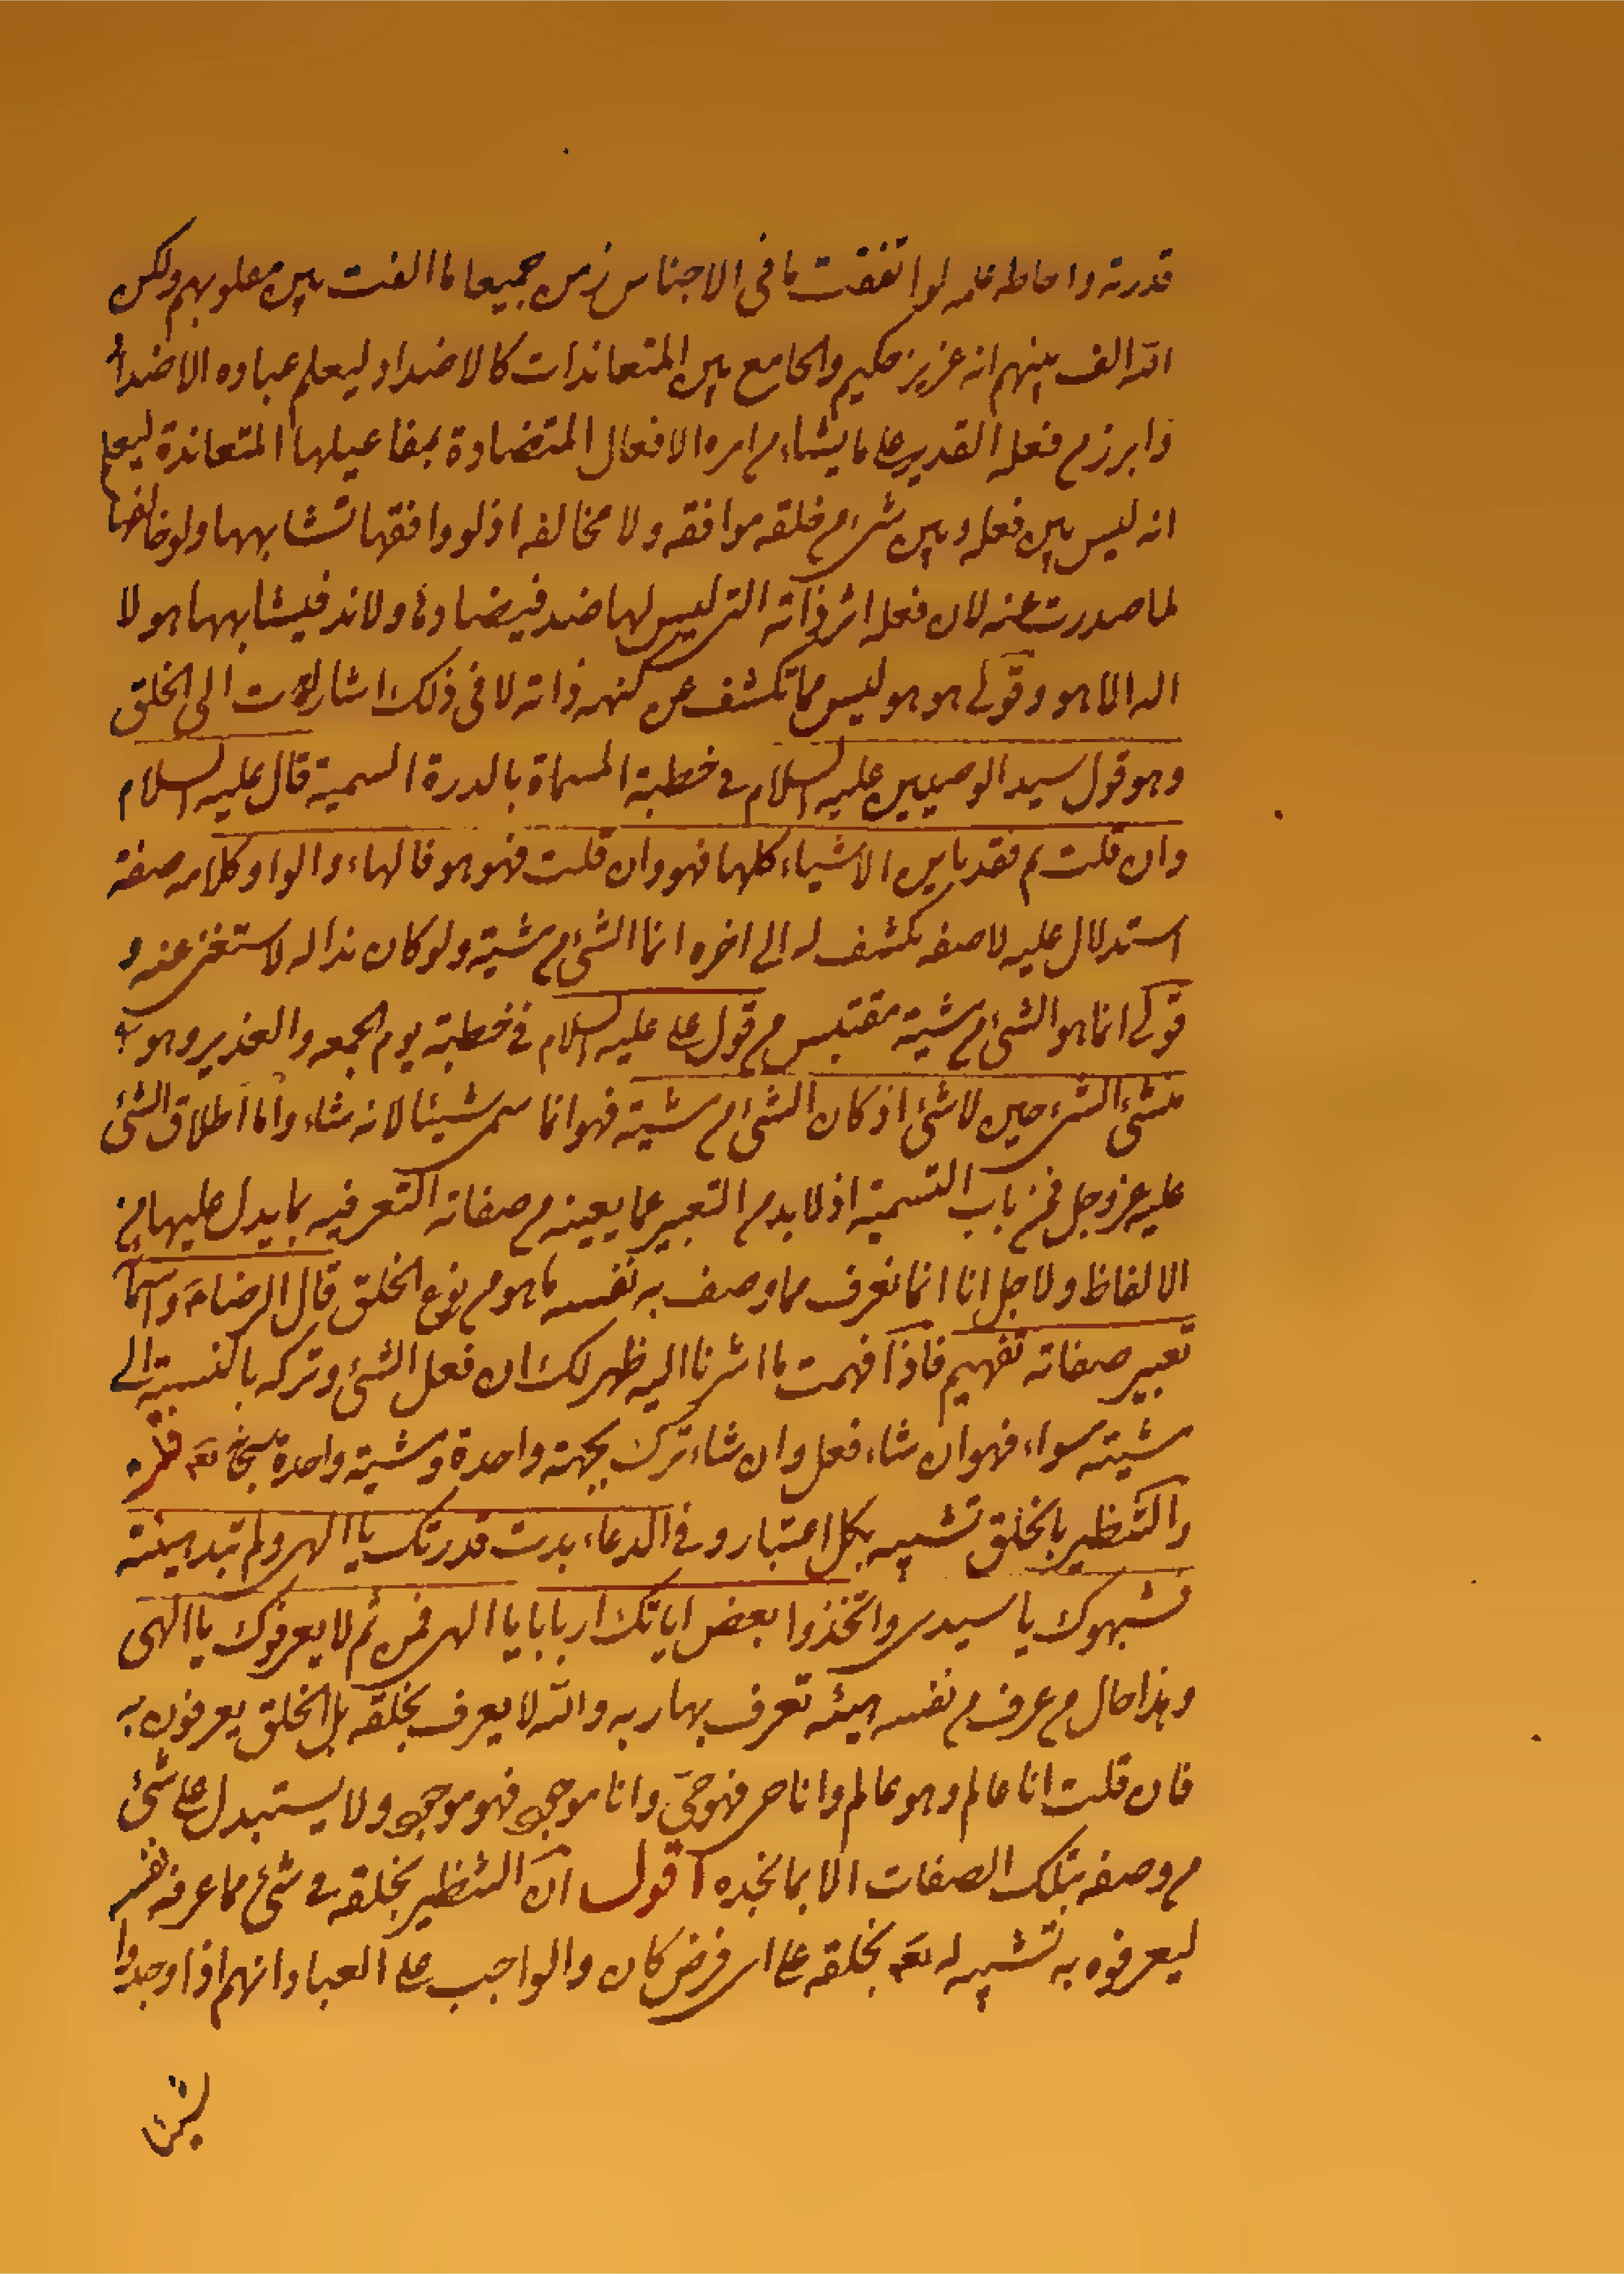 قدرته واحاطه علمه لو انفقت ما فى الاجناس زمن جميعا ما الفت بين مقلوبهم ولكن
الله الف بينهم انه عزيز حكيم والجامع بين المتعاندات كالاضداد ليعلم عباده الاضداد
وابرز من فعله القدير على ما يشاء من امره الافعال المتضادة بمفاعيلها المتعاندة ليعلم
انه ليس بين فعله وبين شىء من خلقه موافقه ولا مخالفه اذ لو وافقها تشابهها ولو خالفها
لما صدرت عنه لان فعله اثر ذاته التى ليس لها ضد فيضادها ولا ند فيشابهها هو لا
اله الا هو وقولى هو هو ليس مما تكشف عن كنهه ذاته لا فى ذلك اشارات الى الخلق
وهو قول سيد الوصيين عليه السلام فى خطبة المسماة بالدرة السمية قال عليه السلام
وان قلت مم فقد باين الاشياء كلها فهو وان قلت فهو هو فالهاء والواو كلامه صفة
استدلال عليه لا صفه تكشف له الى اخره انما الشئ من مشية ولو كان ندا له لاستغنى عنه و
قولى انما هو الشئ من مشية مقتبس من قول على عليه السلام فى خطبة يوم الجمعه والغدير وهو
منشئ الشىء حين لا شئ اذ كان الشئ من مشية فهو انما سمى شيئا لانه شاء واما اطلاق الشئ
عليه عز وجل فمن باب التسمية اذ لا بد من التعبير عما يعينه من صفاته التعرفيه بما يدل عليها من
الالفاظ ولاجل انا انما نعرف مما وصف به نفسه ما هو من نوع الخلق قال الرضا ع واسما
تعبير صفاته تفهيم فاذا فهمت ما اشرنا اليه ظهر لك ان فعل الشئ وتركه بالنسبة الى
مشيته سواء فهو ان شاء فعل وان شاء ترك بجهة واحدة ومشية واحدة
والتنظير بالخلق تشبيه بكل اعتبار وفى الدعاء بدت قدرتك يا الهى ولم تبد هيئة
فشبهوك يا سيدى واتخذوا بعض اياتك اربابا يا الهى فمن ثم لا يعرفوك يا الهى
وهذا حال من عرف من نفسه هيئة تعرف بها ربه والله لا يعرف بخلقه بل الخلق يعرفون به
فان قلت انا عالم وهو عالم وانا حى فهو حىّ وانا موجود فهو موجود ولا يستبدل على شئ
من وصفه بتلك الصفات الا بما نجده اقول ان التنظير بخلقه فى شئ مما عرفه نفسه
ليعرفوه به تشبيه له تع بخلقه على اى فرض كان والواجب على العباد انهم اذا وجدوا